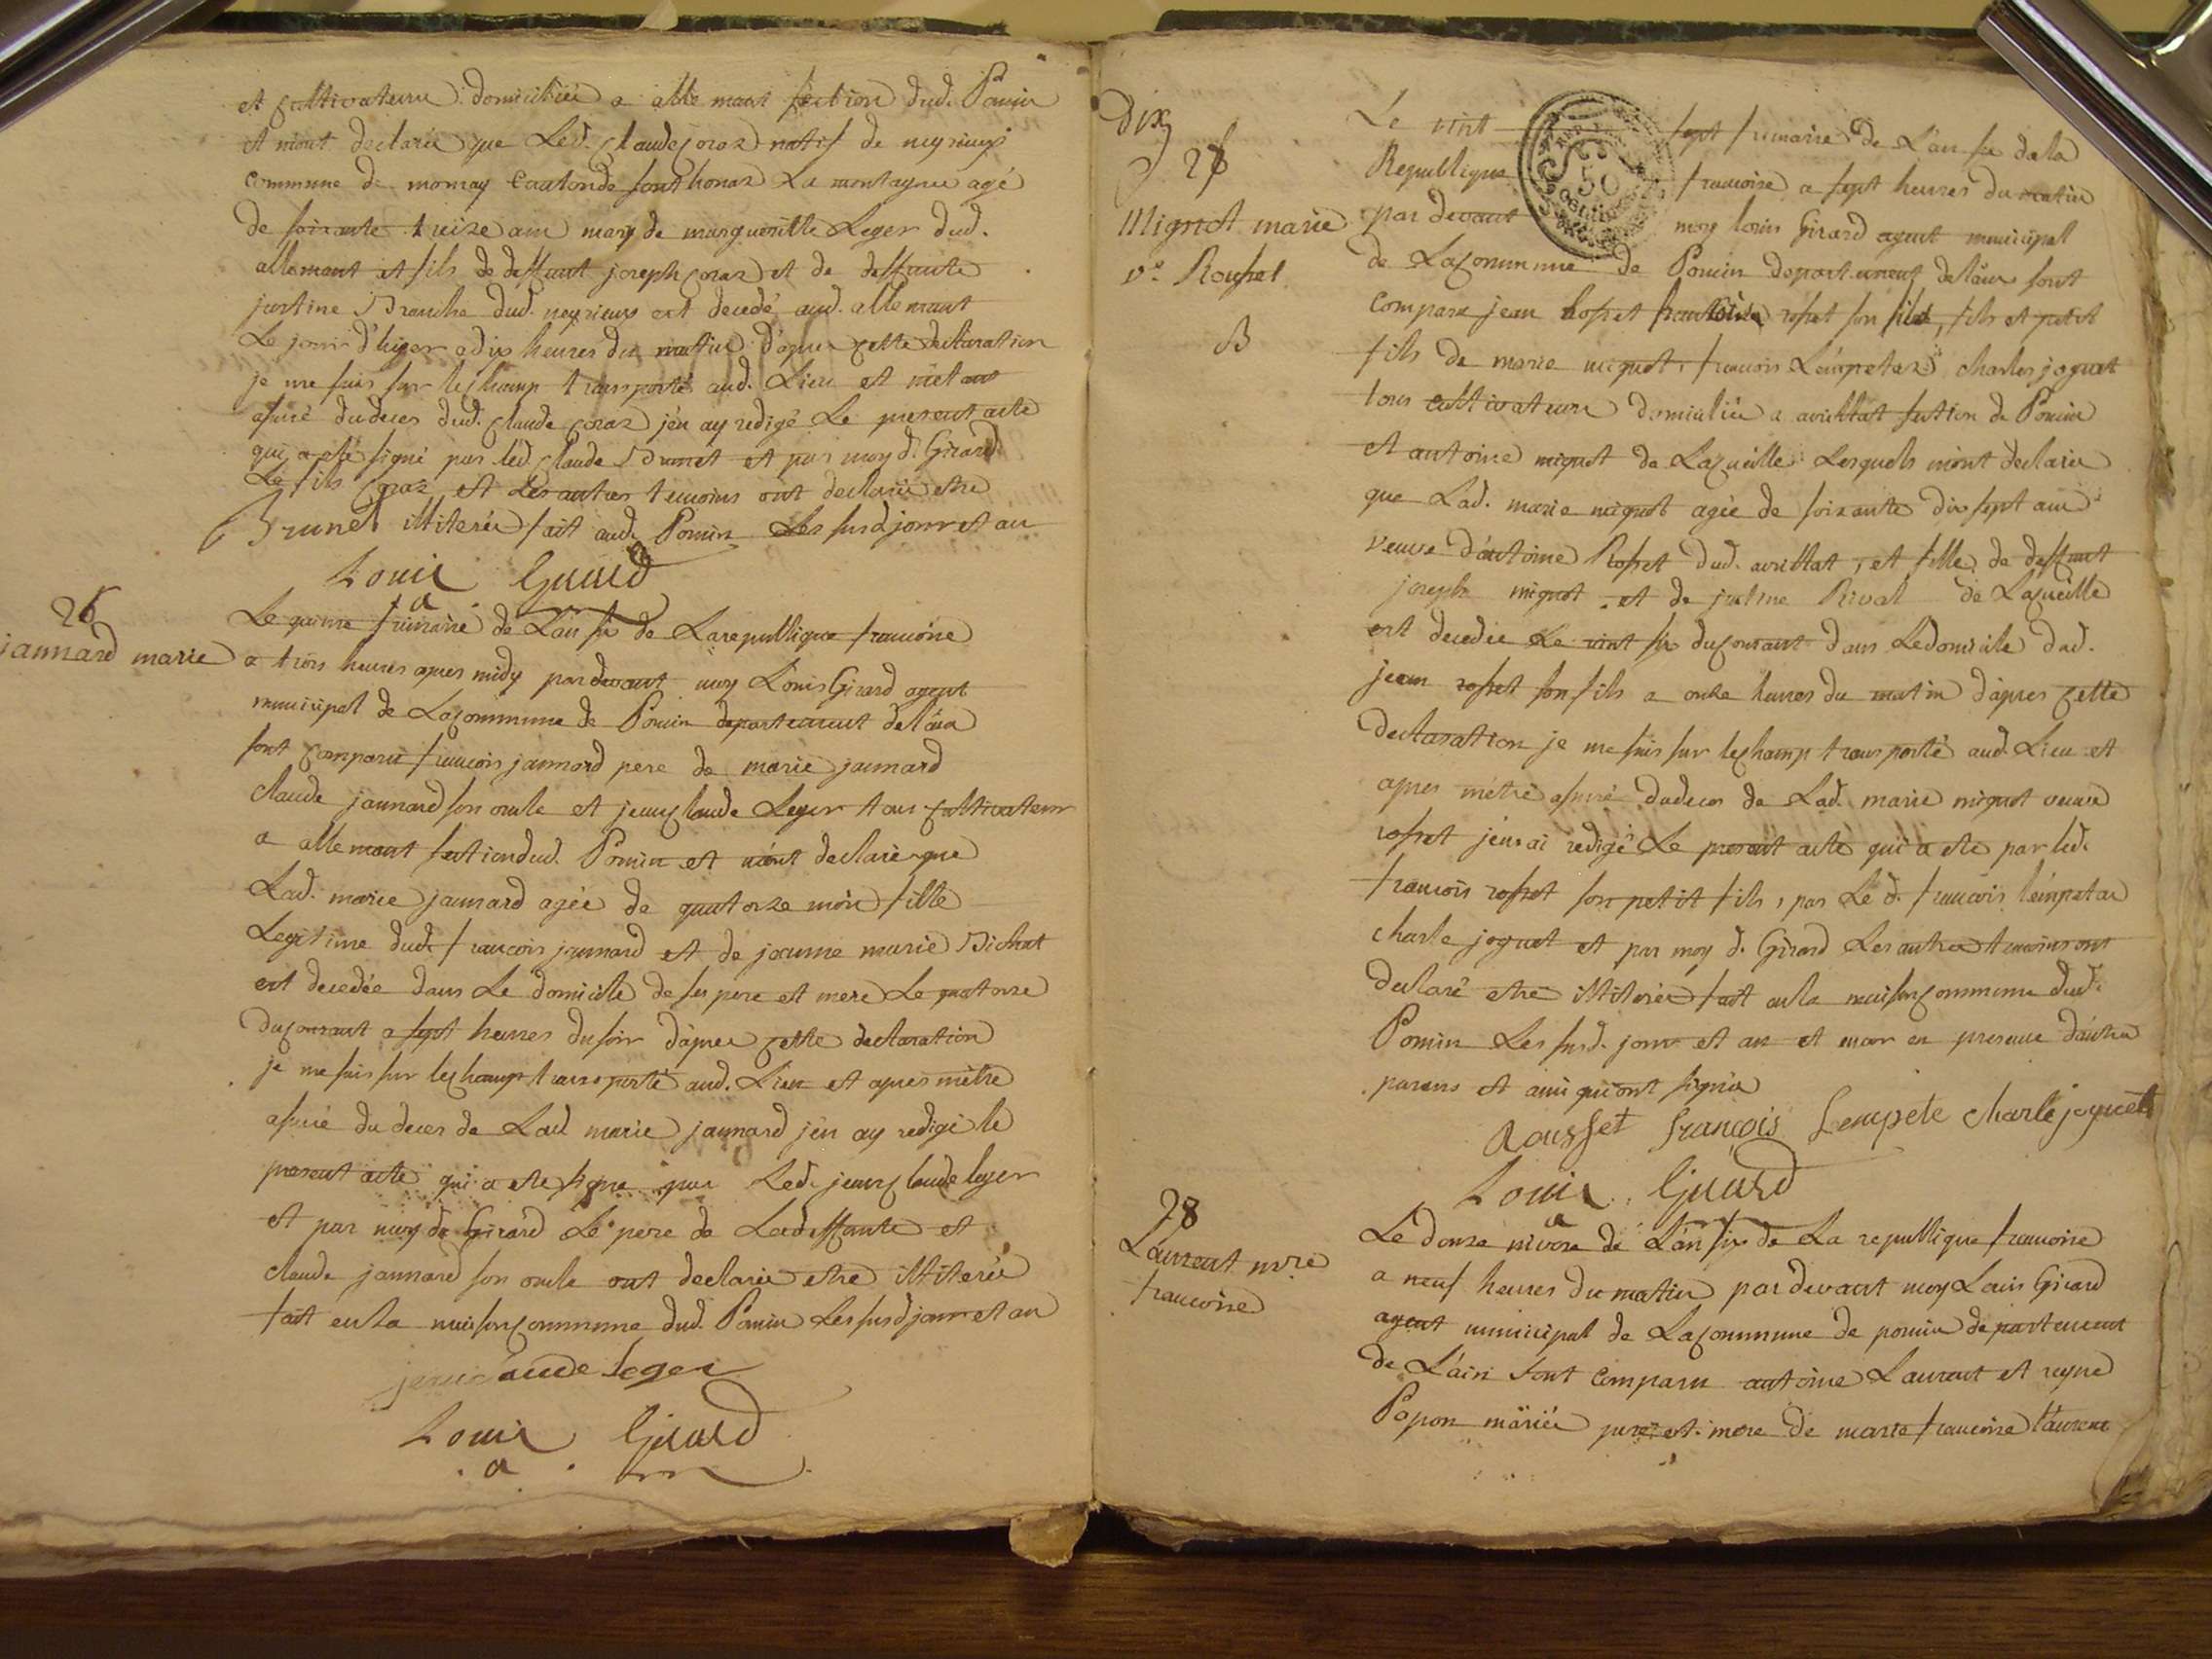 et cultivateurs domiciliés a allemant section dud. Poncin
et m'ont declaré que Led. Claude Coraz natif de neyrieux
commune de mornay Canton de sonthonax La montagne agé
de soixante treize ans mary de margueritte Leger dud.
allemant et fils de deffunt joseph Coraz et de deffunte
justine Branche dud. neyrieux est decedé aud. allemant
Le jour d'hiyer a dix heures du matin d'apres cette declaration
je me suis sur lechamp transporté aud. Lieu et m'etant
asuré du deces dud. Claude Coraz j'en ay redigé Le present acte
qui a eté signé par led. Claude Brunet et par moy d. Girard
Le fils Coraz et les autres temoins ont declarés etre
Brunet illiterés fait aud. Poncin Les susd. jour et an
Louis Girard
a
26
jannard marie
Le quinse frimaire de L'an six de La republique francoise
a trois heures apres midy pardevant moy Louis Girard agent
municipal de La Commune de Poncin departement de l'ain
sont comparu francois jannard pere de marie jannard
claude jannard son oncle et jean Claude Leger tous cultivateurs
a allemant section dud. Poncin et m'ont declaré que
Lad. marie jannard agée de quatorze mois fille
Legitime dud. francois jannard et de jeanne marie Bichat
est decedée dans Le domicile de ses pere et mere Le quatorse
du Courant a sept heures du soir d'apres cette declaration
je me suis sur lechamp transporté aud. Lieu et apres m'etre
asuré du deces de Lad. marie jannard j'en ay redigé le
present acte qui a eté signé par Led. jean Claude leger
et par moy d. Girard Le pere de La deffunte et
claude jannard son oncle ont declarés etre illiterés
fait en la maison Commune dud. Poncin Les susd. jour et an
jean claude leger
Louis Girard
a
Dix
27
Mignot marie
ve. Rousset
B
Le vint sept frimaire de L'an six de la
Republique francoise a sept heures du matin
par devant moy louis Girard agent municipal
de La Commune de Poncin departement de l'ain sont
comparu jean Rosset francois rosset son fils, fils et petit
fils de marie miquot, francois Lempetaz charles joguet
tous cultivateurs domiciliés a avrillat section de Poncin
et antoine miquot de La Cueille Lesquels m'ont declarés
que Lad. marie miquot agée de soixante dix sept ans
veuve d'antoine Rosset dud. avrillat, et fille de deffunt
joseph miquot et de justine Rival de La Cueille
est decedée Le vint six du Courant dans Le domicile dud.
jean rosset son fils a onze heures du matin d'apres cette
declaration je me suis sur lechamp transporté aud. Lieu et
apres m'etre asuré du deces de Lad. marie miquot veuve
rosset j'en ai redigé Le present acte qui a eté par led.
francois rosset son petit fils, par Le d. francois lempetaz
charle joguet et par moy d. Girard Les autres temoins ont
declaré etre illiterés fait en la maison Commune dud.
Poncin Les susd. jour et an et en presence d'autres
parens et amis qui ont signés
Rousset françois Lempete charle joguet
Louis Girard
a
28
Laurent mrie
francoise
Le douse nivose de L'an six de La republique francoise
a neuf heures du matin pardevant moy Louis Girard
agent municipal de La Commune de poncin departement
de L'ain sont comparu antoine Laurent et reyne
Popon mariés pere et mere de marie francoise laurent